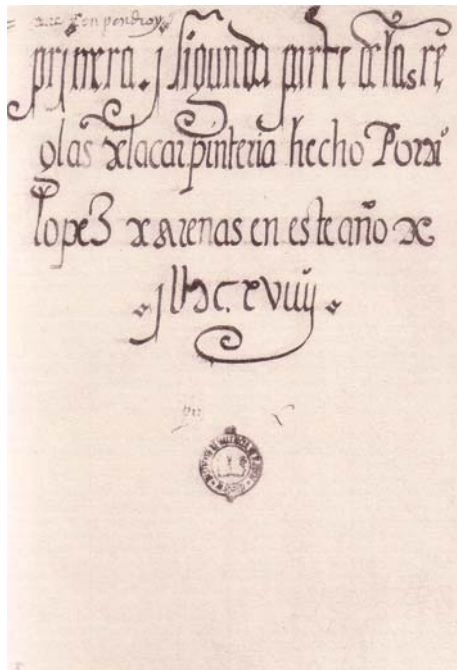 primera. j sigunda parte de las re
glas de la carpinteria hecho Por di°
lopez de arenas en este año de
. j U DC. xviiij .